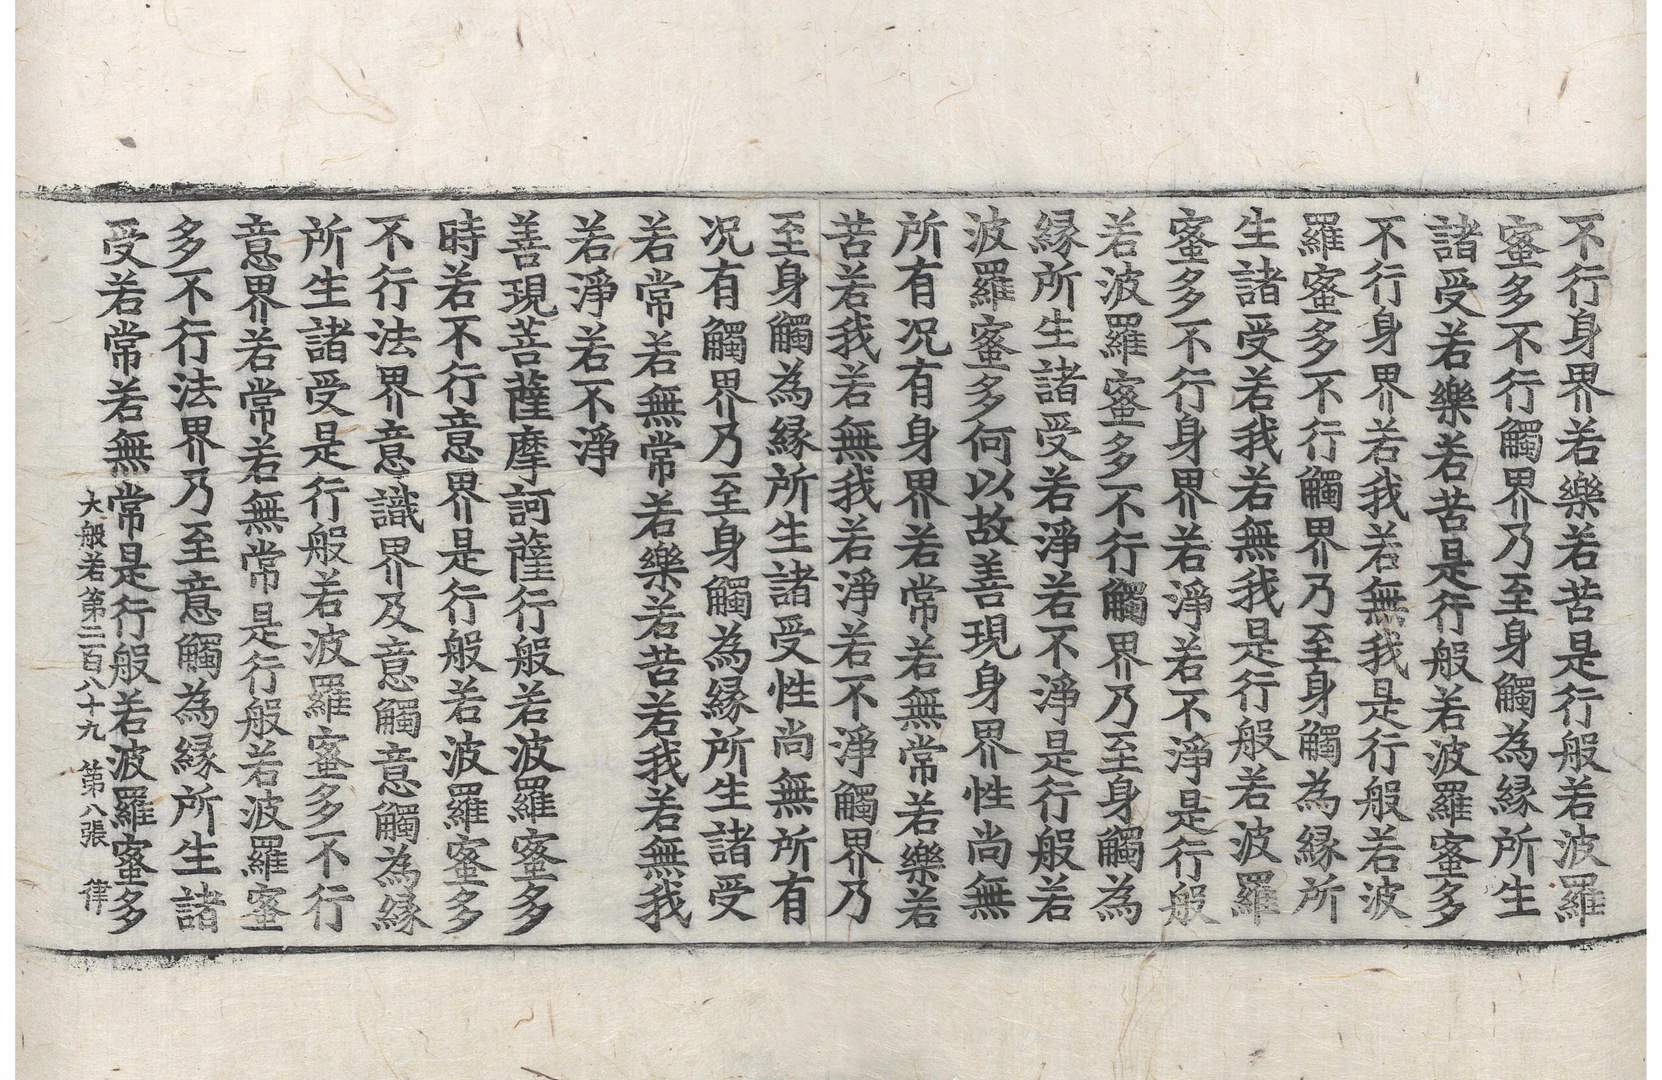 不行身界若樂若苦是行般若波羅
蜜多不行觸界乃至身觸為緣所生
諸受若樂若苦是行般若波羅蜜多
不行身界若我若無我是行般若波
羅蜜多不行觸界乃至身觸為緣所
生諸受若我若無我是行般若波羅
蜜多不行身界若淨若不淨是行般
若波羅蜜多不行觸界乃至身觸為
緣所生諸受若淨若不淨是行般若
波羅蜜多何以故善現身界性尚無
所有况有身界若常若無常若樂若
苦若我若無我若淨若不淨觸界乃
至身觸為緣所生諸受性尚無所有
况有觸界乃至身觸為緣所生諸受
若常若無常若樂若苦若我若無我
若淨若不淨
善現菩薩摩訶薩行般若波羅蜜多
時若不行意界是行般若波羅蜜多
不行法界意識界及意觸意觸為緣
所生諸受是行般若波羅蜜多不行
意界若常若無常是行般若波羅蜜
多不行法界乃至意觸為緣所生諸
受若常若無常是行般若波羅蜜多
大般若第二百八十九 第八張 律